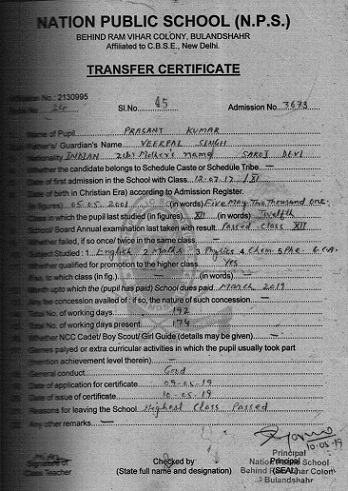 NATION PUBLIC SCHOOL (N.P.S.)
BEHIND RAM VIHAR COLONY, BULANDSHAHR
Affiliated to C.B.S.E., New Delhi.
TRANSFER CERTIFICATE
No.: 2130995
Sl.No. 45 Admission No. 3673
Name of Pupil PRASANT KUMAR
Father's/ Guardian's Name VEERPAL SINGH
Nationality INDIAN Mother's name SAROJ DEVI
Whether the candidate belongs to Schedule Caste or Schedule Tribe —
Date of first admission in the School with Class 12-07-17 / XI
Date of birth (in Christian Era) according to Admission Register.
(in figures) 05.05.2001 (in words) Five May Two Thousand one.
Class in which the pupil last studied (in figures) XII (in words) Twelfth
School/ Board Annual examination last taken with result. Passed class XII
Whether failed, if so once/ twice in the same class —
Subject Studied : 1. English 2. Maths 3 Physics 4 Chem. 5 Phe. 6
Whether qualified for promotion to the higher class Yes
If so, to which class (in fig.) — (in words) —
Month upto which the (pupil has paid) School dues paid March 2019
Any fee concession availed of : if so, the nature of such concession. —
Total No. of working days 192
Total No. of working days present 174
Whether NCC Cadet/ Boy Scout/ Girl Guide (details may be given) —
Games palyed or extra curricular activities in which the pupil usually took part
(mention achievement level therein) —
General conduct Good
Date of application for certificate 09-05-19
Date of issue of certificate 10-05-19
Reasons for leaving the School Highest Class Passed
Any other remarks —
10-05-19
Principal
Signature of Checked by Nation Public School
Class Teacher (State full name and designation) (SEAL)
Behind Ram Vihar Colon
Bulandshahr